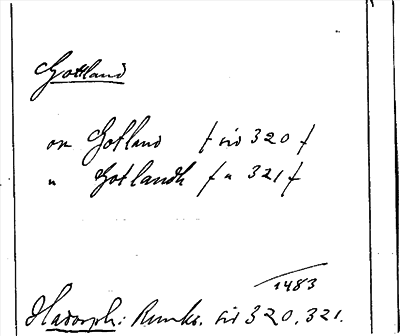 Gottland
on Gotland f sid 320 f
" Gotlandh f " 321 f
1483
Hadorph: Runks. sid 320, 321.